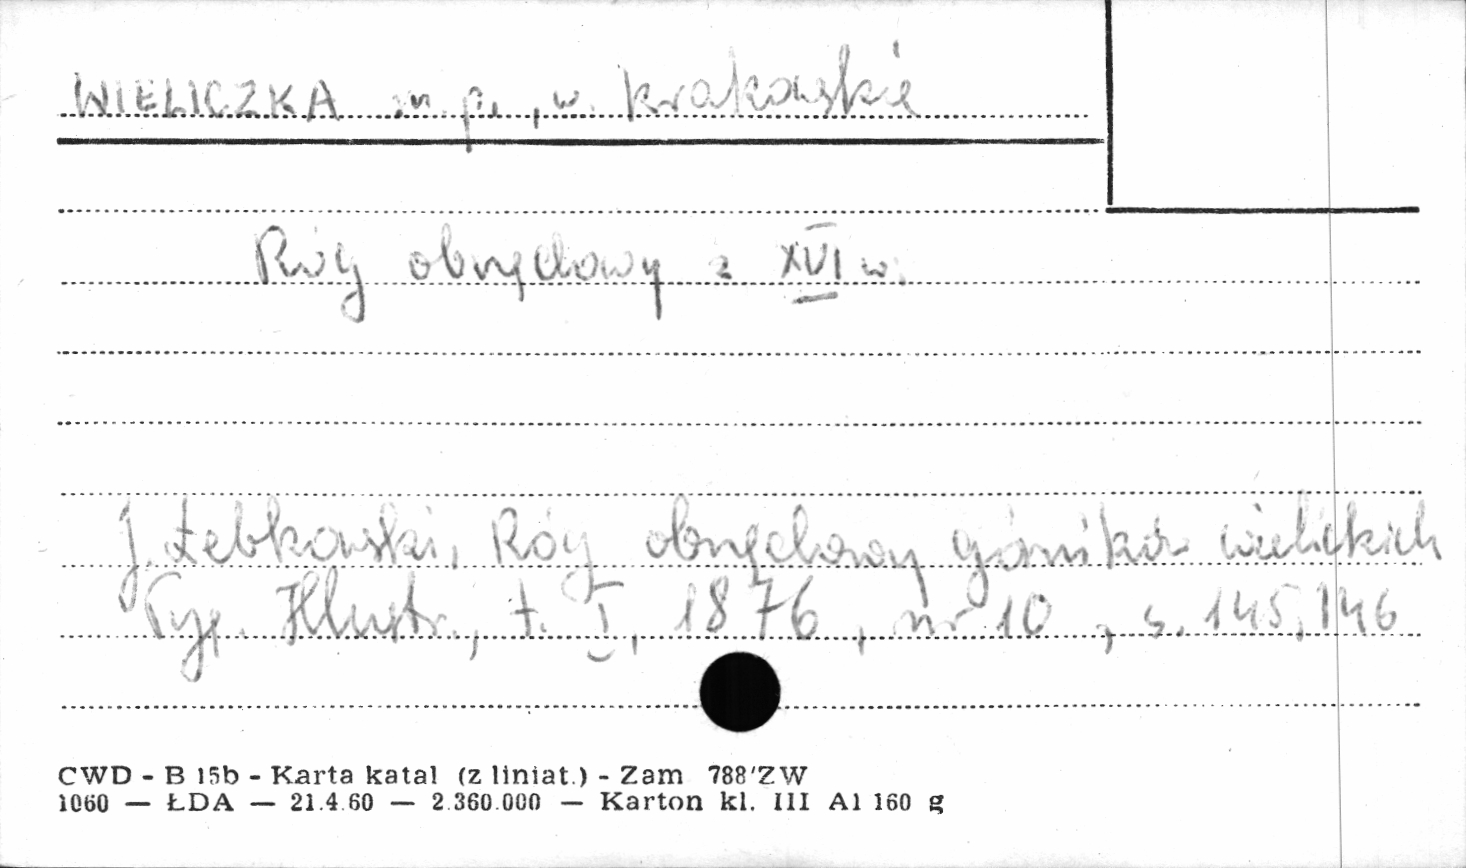 WIELICZKA m.p., w. krakowskie
Róg obrzędowy z XVI w.
J. Łebkowski, Róg obrzędowy górników wielickich
Tyg. Illustr., t. I, 1876, nr 10, s. 145, 146
CWD - B 15b - Karta katal (z liniat.) - Zam 788'ZW
1060 — ŁDA — 21.4.60 — 2.360.000 — Karton kl. III A1 160 g